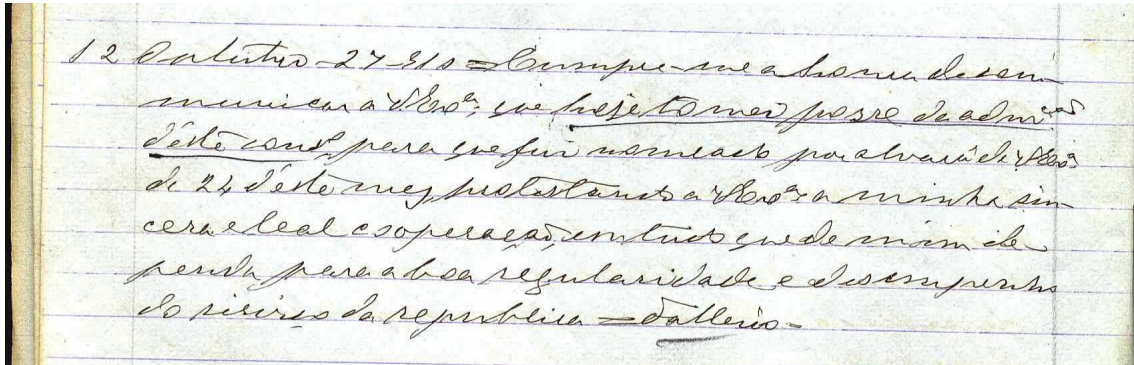 12 Outubro - 27-910 = Cumpre-me a honra de com
municar a V Exª; que hoje tomei posse da admçao
d'este conc.º, para que fui nomeado por alvará de V Exª
de 24 d'este mez, protestando a V Exª a minha sin
cera e leal cooperação, em tudo que de mim de
penda para a boa regularidade e desempenho
do serviço da republica =